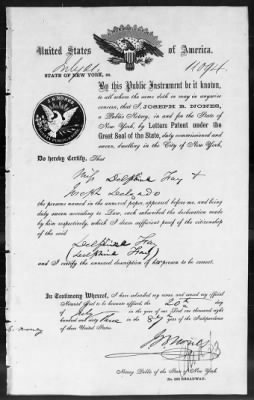 United States of America.
STATE OF NEW YORK, ss.
By this Public Instrument be it known,
to all whom the same doth or may in anywise
concern, that I, JOSEPH B. NONES,
a Public Notary, in and for the State of
New York, by Letters Patent under the
Great Seal of the State, duly commissioned and
sworn, dwelling in the City of New York,
Do hereby Certify, That
Miss Delphine Fay &
Joseph
the persons named in the annexed paper, appeared before me, and being
duly sworn according to Law, each subscribed the declaration made
by him respectively, which I deem sufficient proof of the citizenship
of the said
Delphine Fay
(Delphine Fay)
and I certify the annexed description of her person to be correct.
In Testimony Whereof, I have subscribed my name and caused my official
Notarial Seal to be hereunto affixed, the 20th day
of July in the year of our Lord one thousand eight
hundred and sixty three in the 87 year of the Independence
of these United States.
J B Nones
Notary Public of the State of New York
BROADWAY.